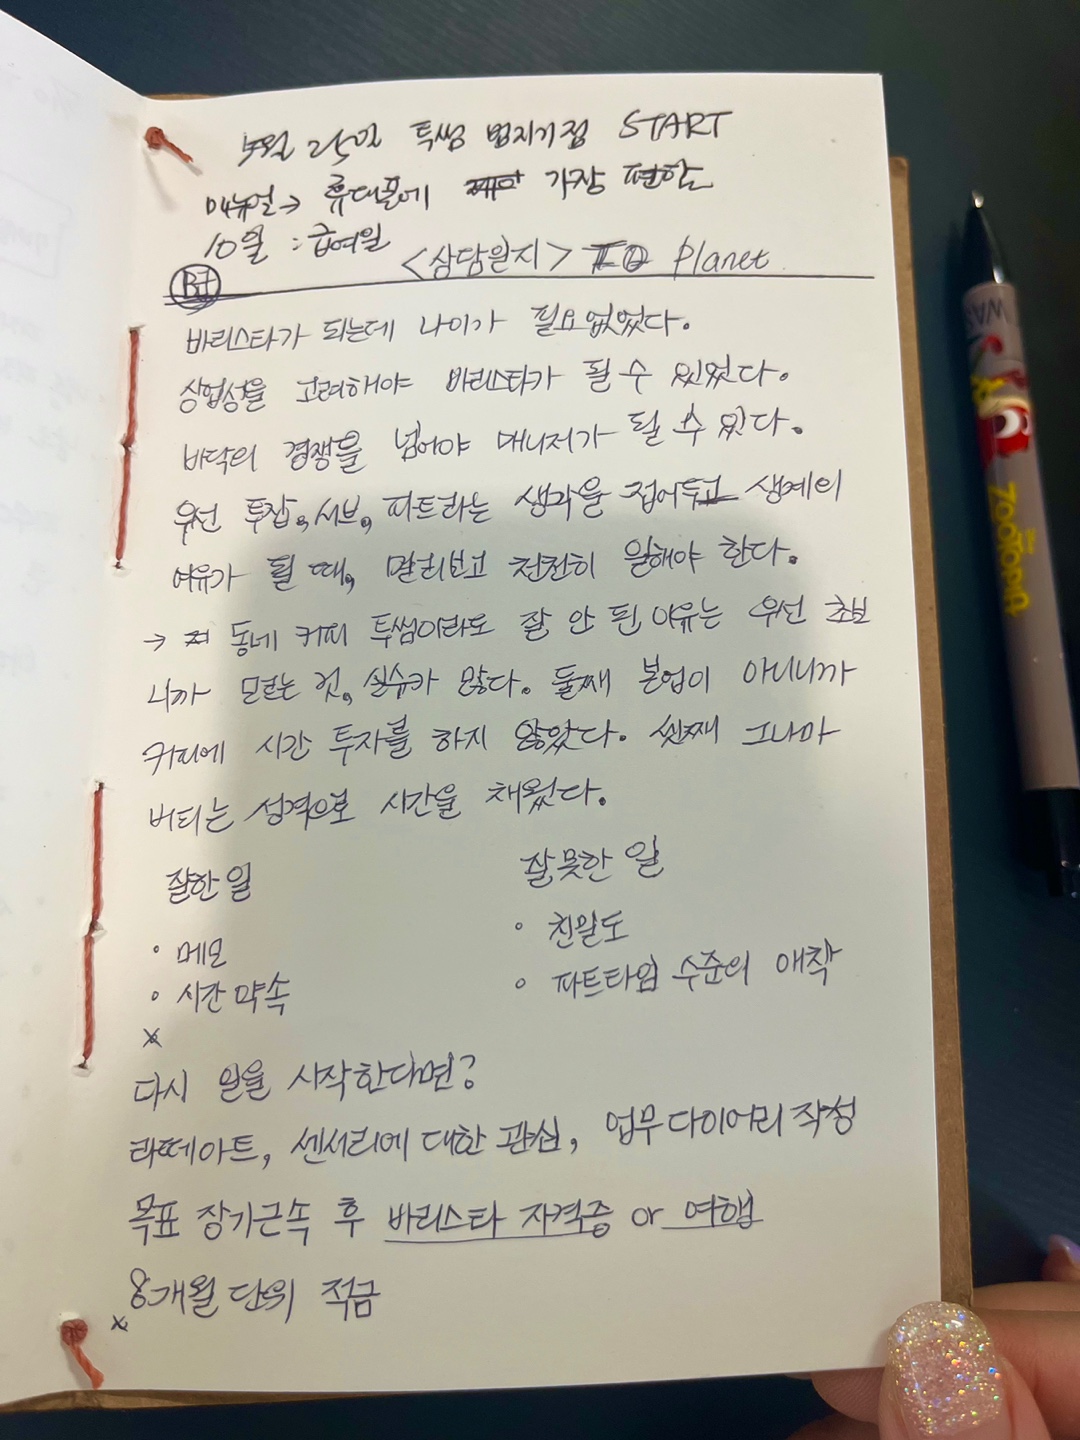 25일 투썸 START
매뉴얼→ 휴대폰에 가장 편함
10일 : 급여일
<상담일지> Planet
바리스타가 되는데 나이가 필요없었다.
상업성을 고려해야 바리스타가 될 수 있었다.
바닥의 경쟁을 넘어야 매니저가 될 수 있다.
우선 투잡, 서브, 파트라는 생각을 접어두고 생계의
여유가 될 때, 멀리보고 천천히 일해야 한다.
→ 동네 커피 투썸이라도 잘 안 된 이유는 우선 초보
니까 모르는 것, 실수가 많다. 둘째 본업이 아니니까
커피에 시간 투자를 하지 않았다. 셋째 그나마
버티는 성격으로 시간을 채웠다.
잘한 일
잘못한 일
• 메모
• 친밀도
• 시간 약속
• 파트타임 수준의 애착
다시 일을 시작한다면?
라떼아트, 센서리에 대한 관심, 업무 다이어리 작성
목표 장기근속 후 바리스타 자격증 or 여행
8개월 단위 적금
ZOOTOPIA